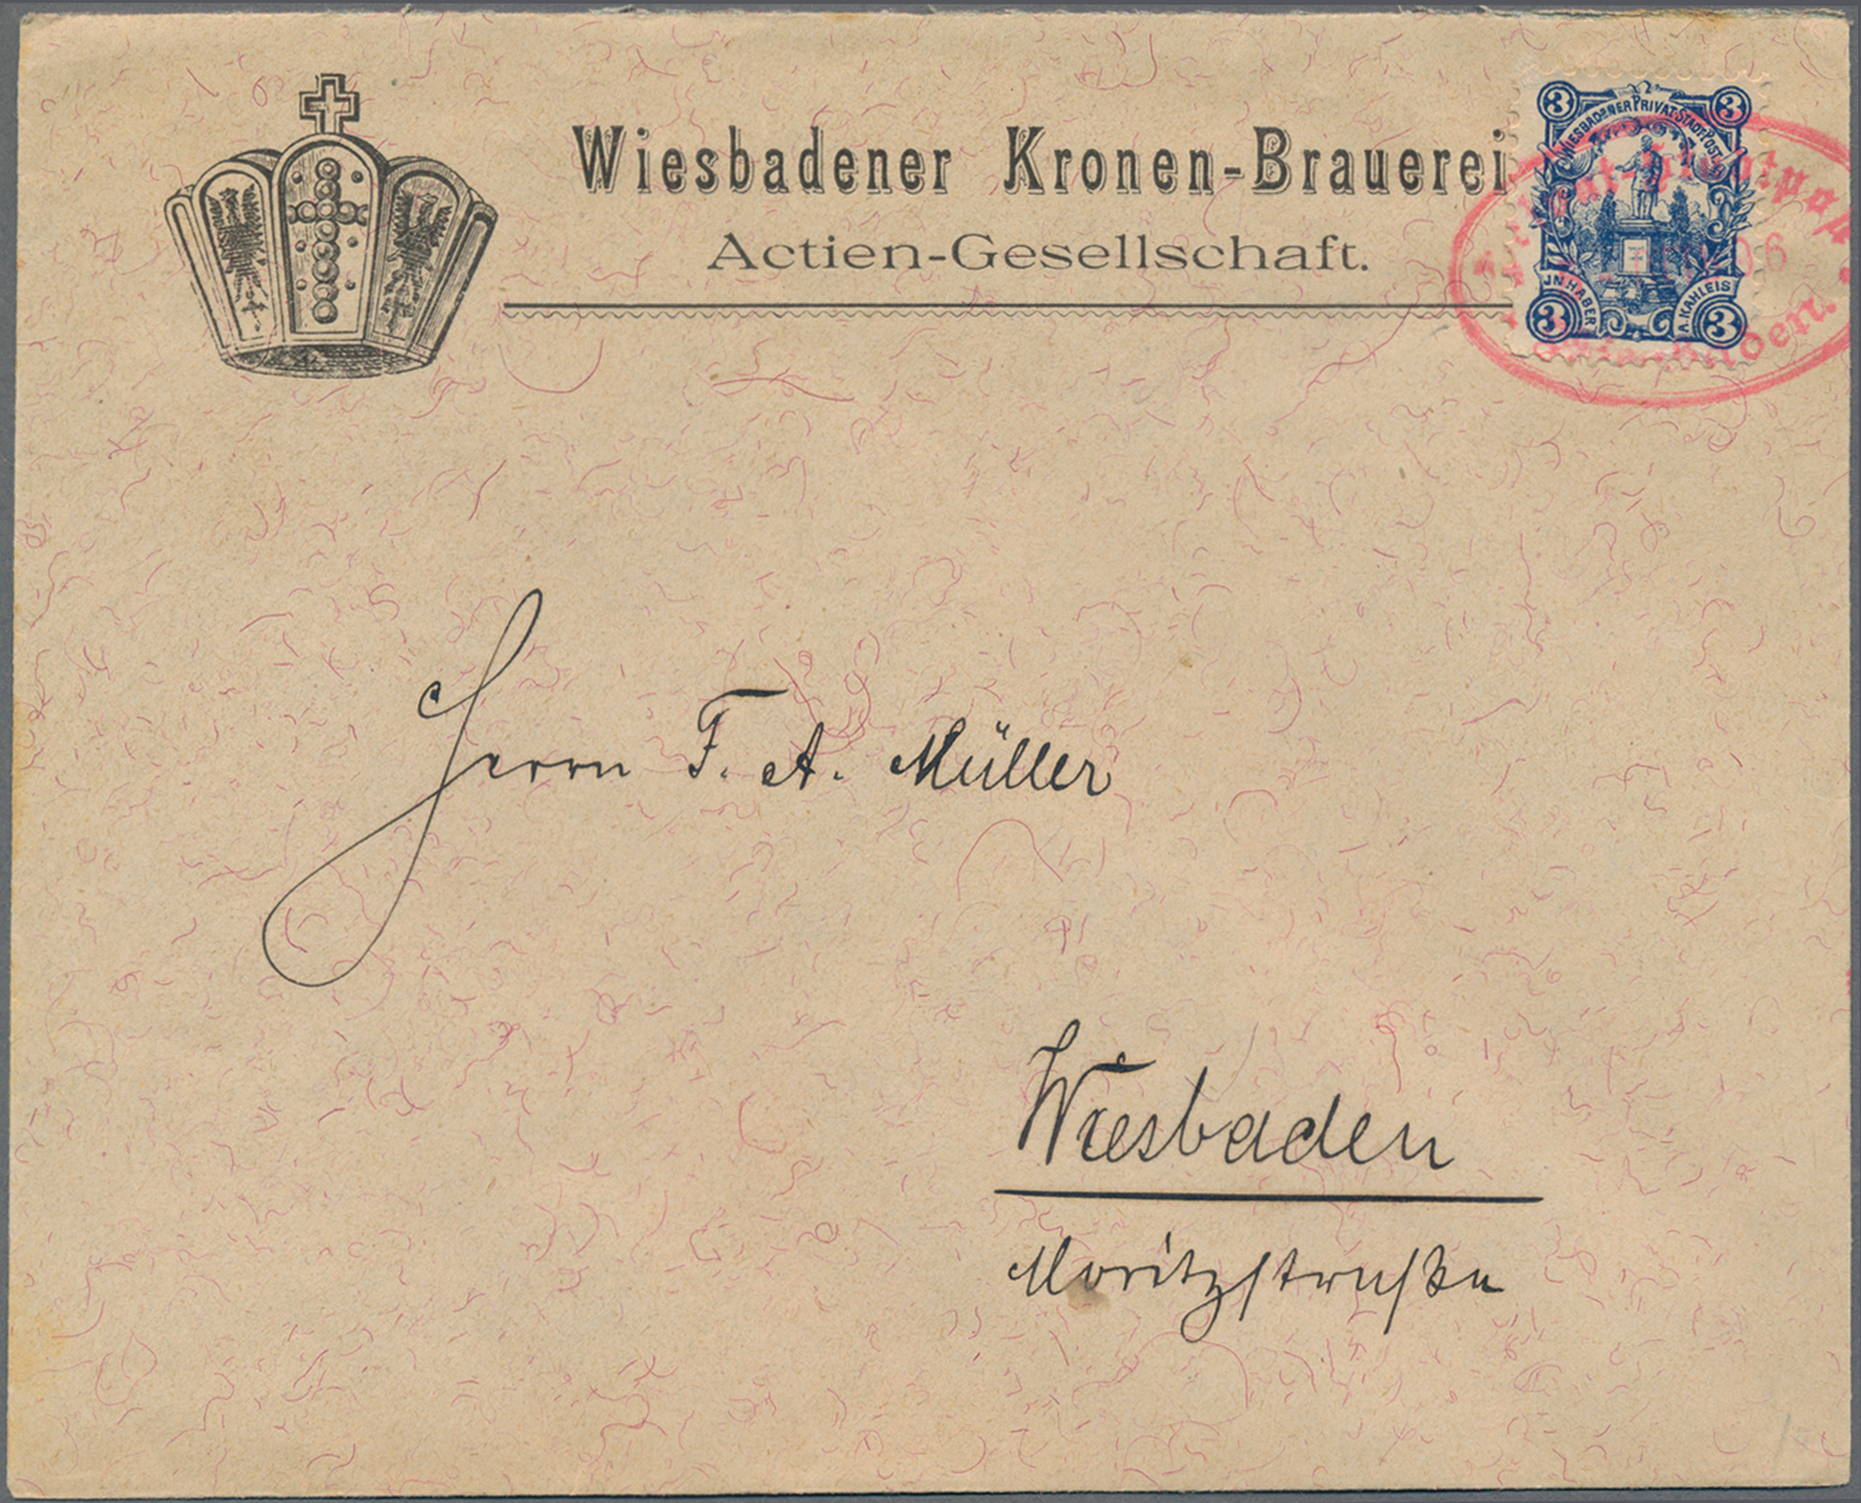 Wiesbadener Kronen-Brauerei
Actien-Gesellschaft.
3 3
WIESBADENER PRIVAT-STADT-POST
JNHABER A. KAHLEIS
3 3
Herrn F. A. Müller
Wiesbaden
Moritzstraße